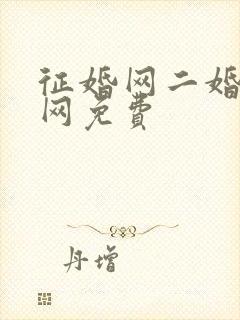 征婚网二婚
网免费
丹增